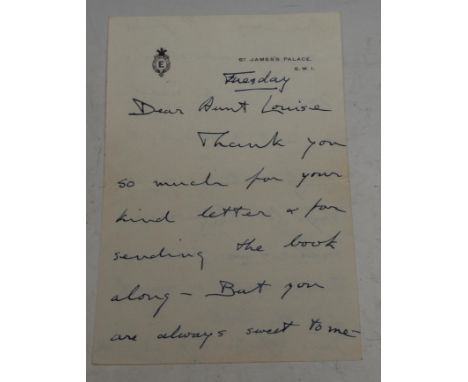 E
ST. JAMES'S PALACE,
S.W.1.
Tuesday
Dear Aunt Louise
Thank you
so much for your
kind letter & for
sending the book
along – But you
are always sweet to me –